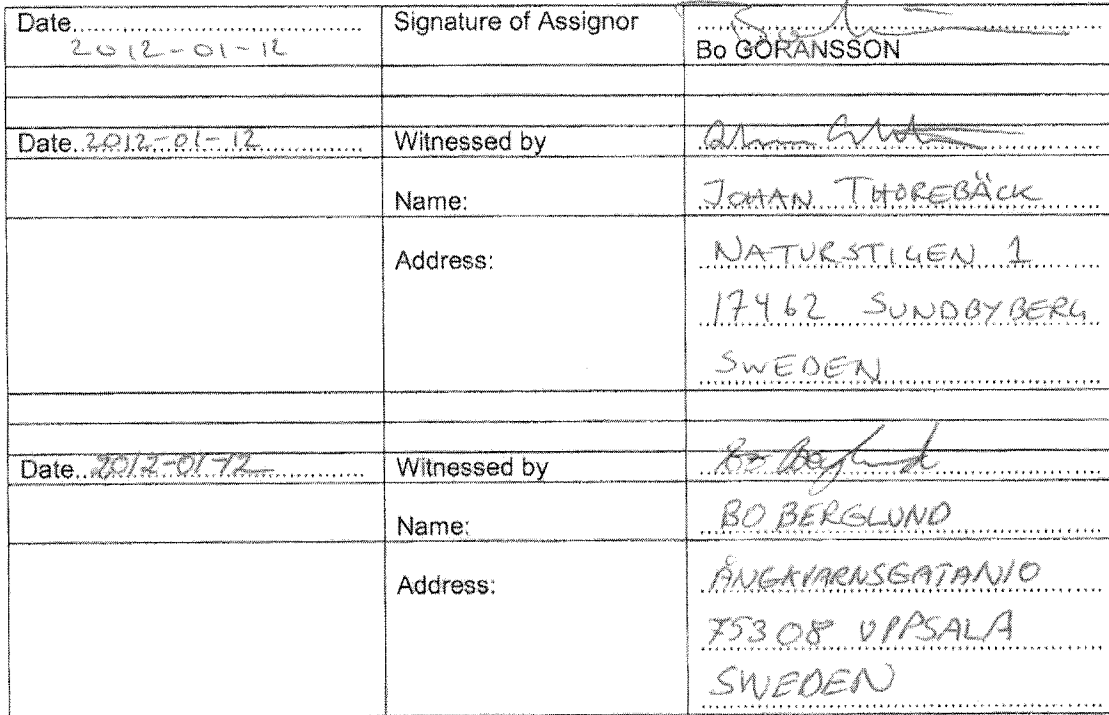 Date
2012-01-12
Signature of Assignor
Bo GÖRANSSON
Date 2012-01-12
Witnessed by
Name:
JOHAN THOREBÄCK
Address:
NATURSTIGEN 1
17462 SUNDBYBERG
SWEDEN
Date 2012-01-12
Witnessed by
Bo Berglund
Name:
BO BERGLUND
Address:
ÅNGKVARNSGATAN 10
75308 UPPSALA
SWEDEN